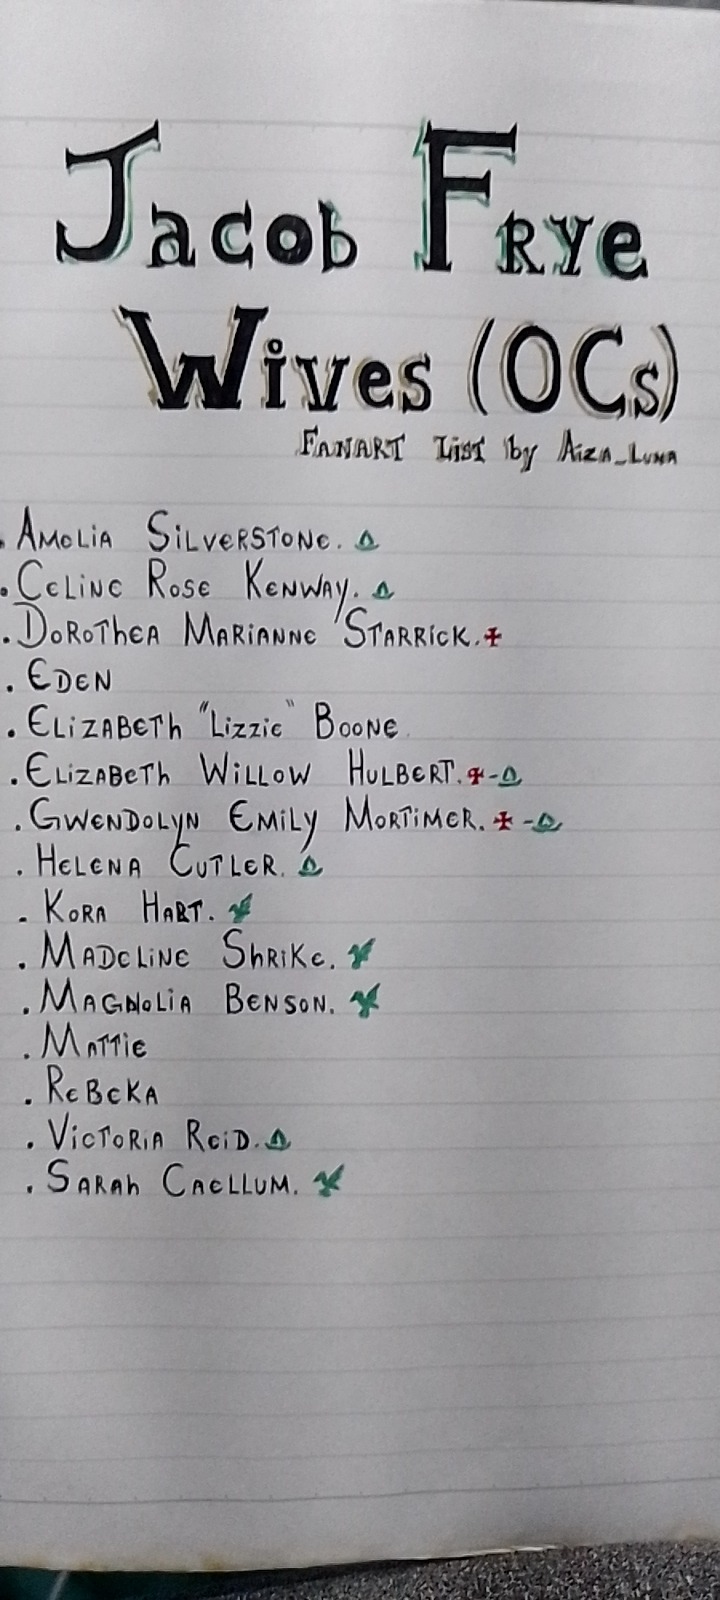 Jacob Frye
Wives (OCs)
Fanart List by Aiza_Luna
. Amelia Silverstone.
. Celine Rose Kenway.
. Dorothea Marianne Starrick.
. Eden
. Elizabeth "Lizzie" Boone
. Elizabeth Willow Hulbert. -
. Gwendolyn Emily Mortimer. -
. Helena Cutler.
. Kora Hart.
. Madeline Shrike.
. Magnolia Benson.
. Mattie
. Rebeka
. Victoria Reid.
. Sarah Caellum.